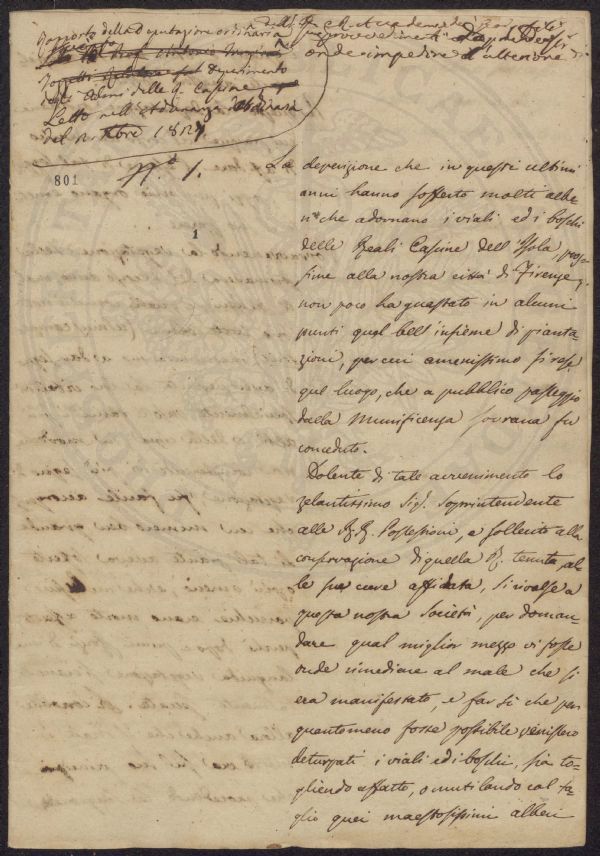 Rapporto della Deputazione ordinaria
deperimento
degli Alberi delle R. Cascine
Letto nell'Adunanza ordinaria
del 1827
onde impedire l'ulteriore
801
N.º 1.
1
La deperizione che in questi ultimi
anni hanno sofferto molti albe
ri che adornano i viali ed i boschi
delle Reali Cascine dell'Isola, pros-
sime alla nostra città di Firenze,
non poco ha guastato in alcuni
punti quel bell'insieme di pianta-
zioni, per cui amenissimo si rese
quel luogo, che a pubblico passeggio
dalla Munificenza Sovrana fu
conceduto.
Dolente di tale avvenimento lo
zelantissimo Sig. Soprintendente
alle R. R. Possessioni, e sollecito alla
conservazione di quella R. tenuta, al-
le sue cure affidata, si rivolse a
questa nostra Società, per doman-
dare qual miglior mezzo vi fosse
onde rimediare al male che si
era manifestato, e far sì che per
quanto meno fosse possibile venissero
deturpati i viali ed i boschi, sia to-
gliendo affatto, o mutilando col ta-
glio quei maestosissimi alberi